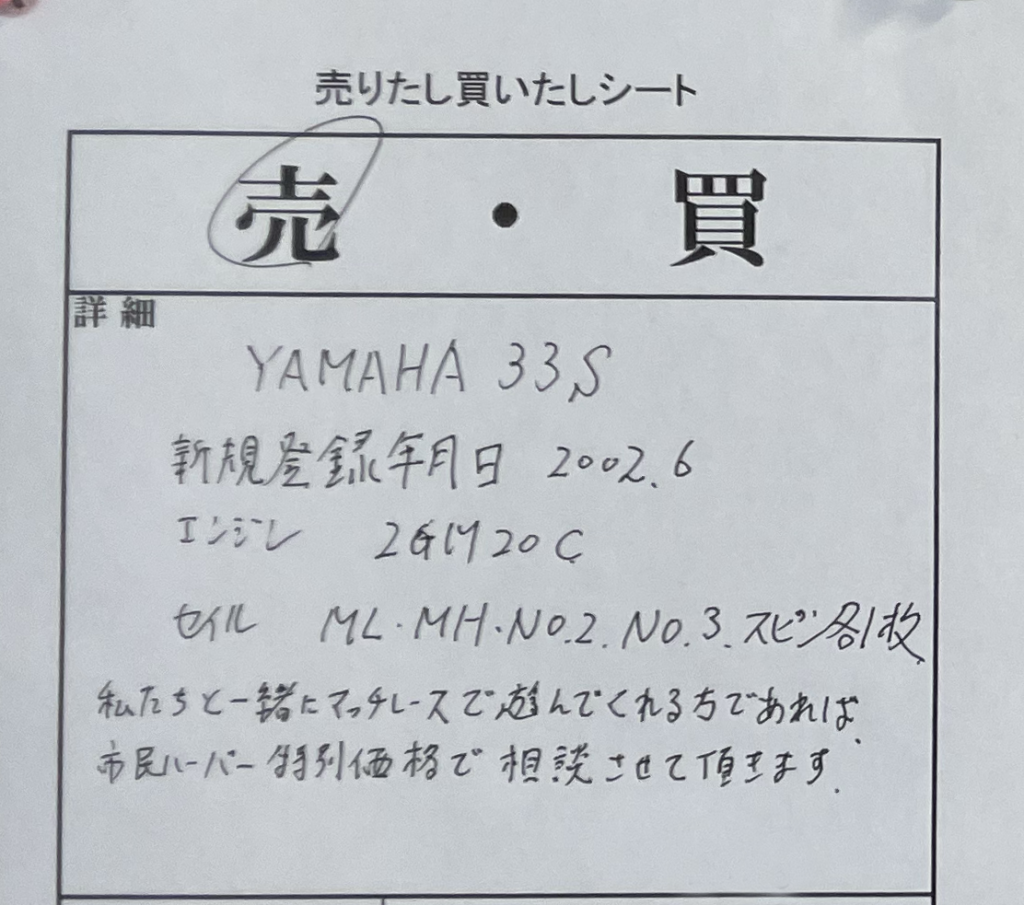 売りたし買いたしシート
売・買
詳細
YAMAHA 33S
新規登録年月日 2002.6
エンジン 2GM20C
セイル ML・MH・NO.2.NO.3.スピン各1枚
私たちと一緒にマッチレースで遊んでくれる方であれば、
市民ハーバー特別価格で相談させて頂きます.